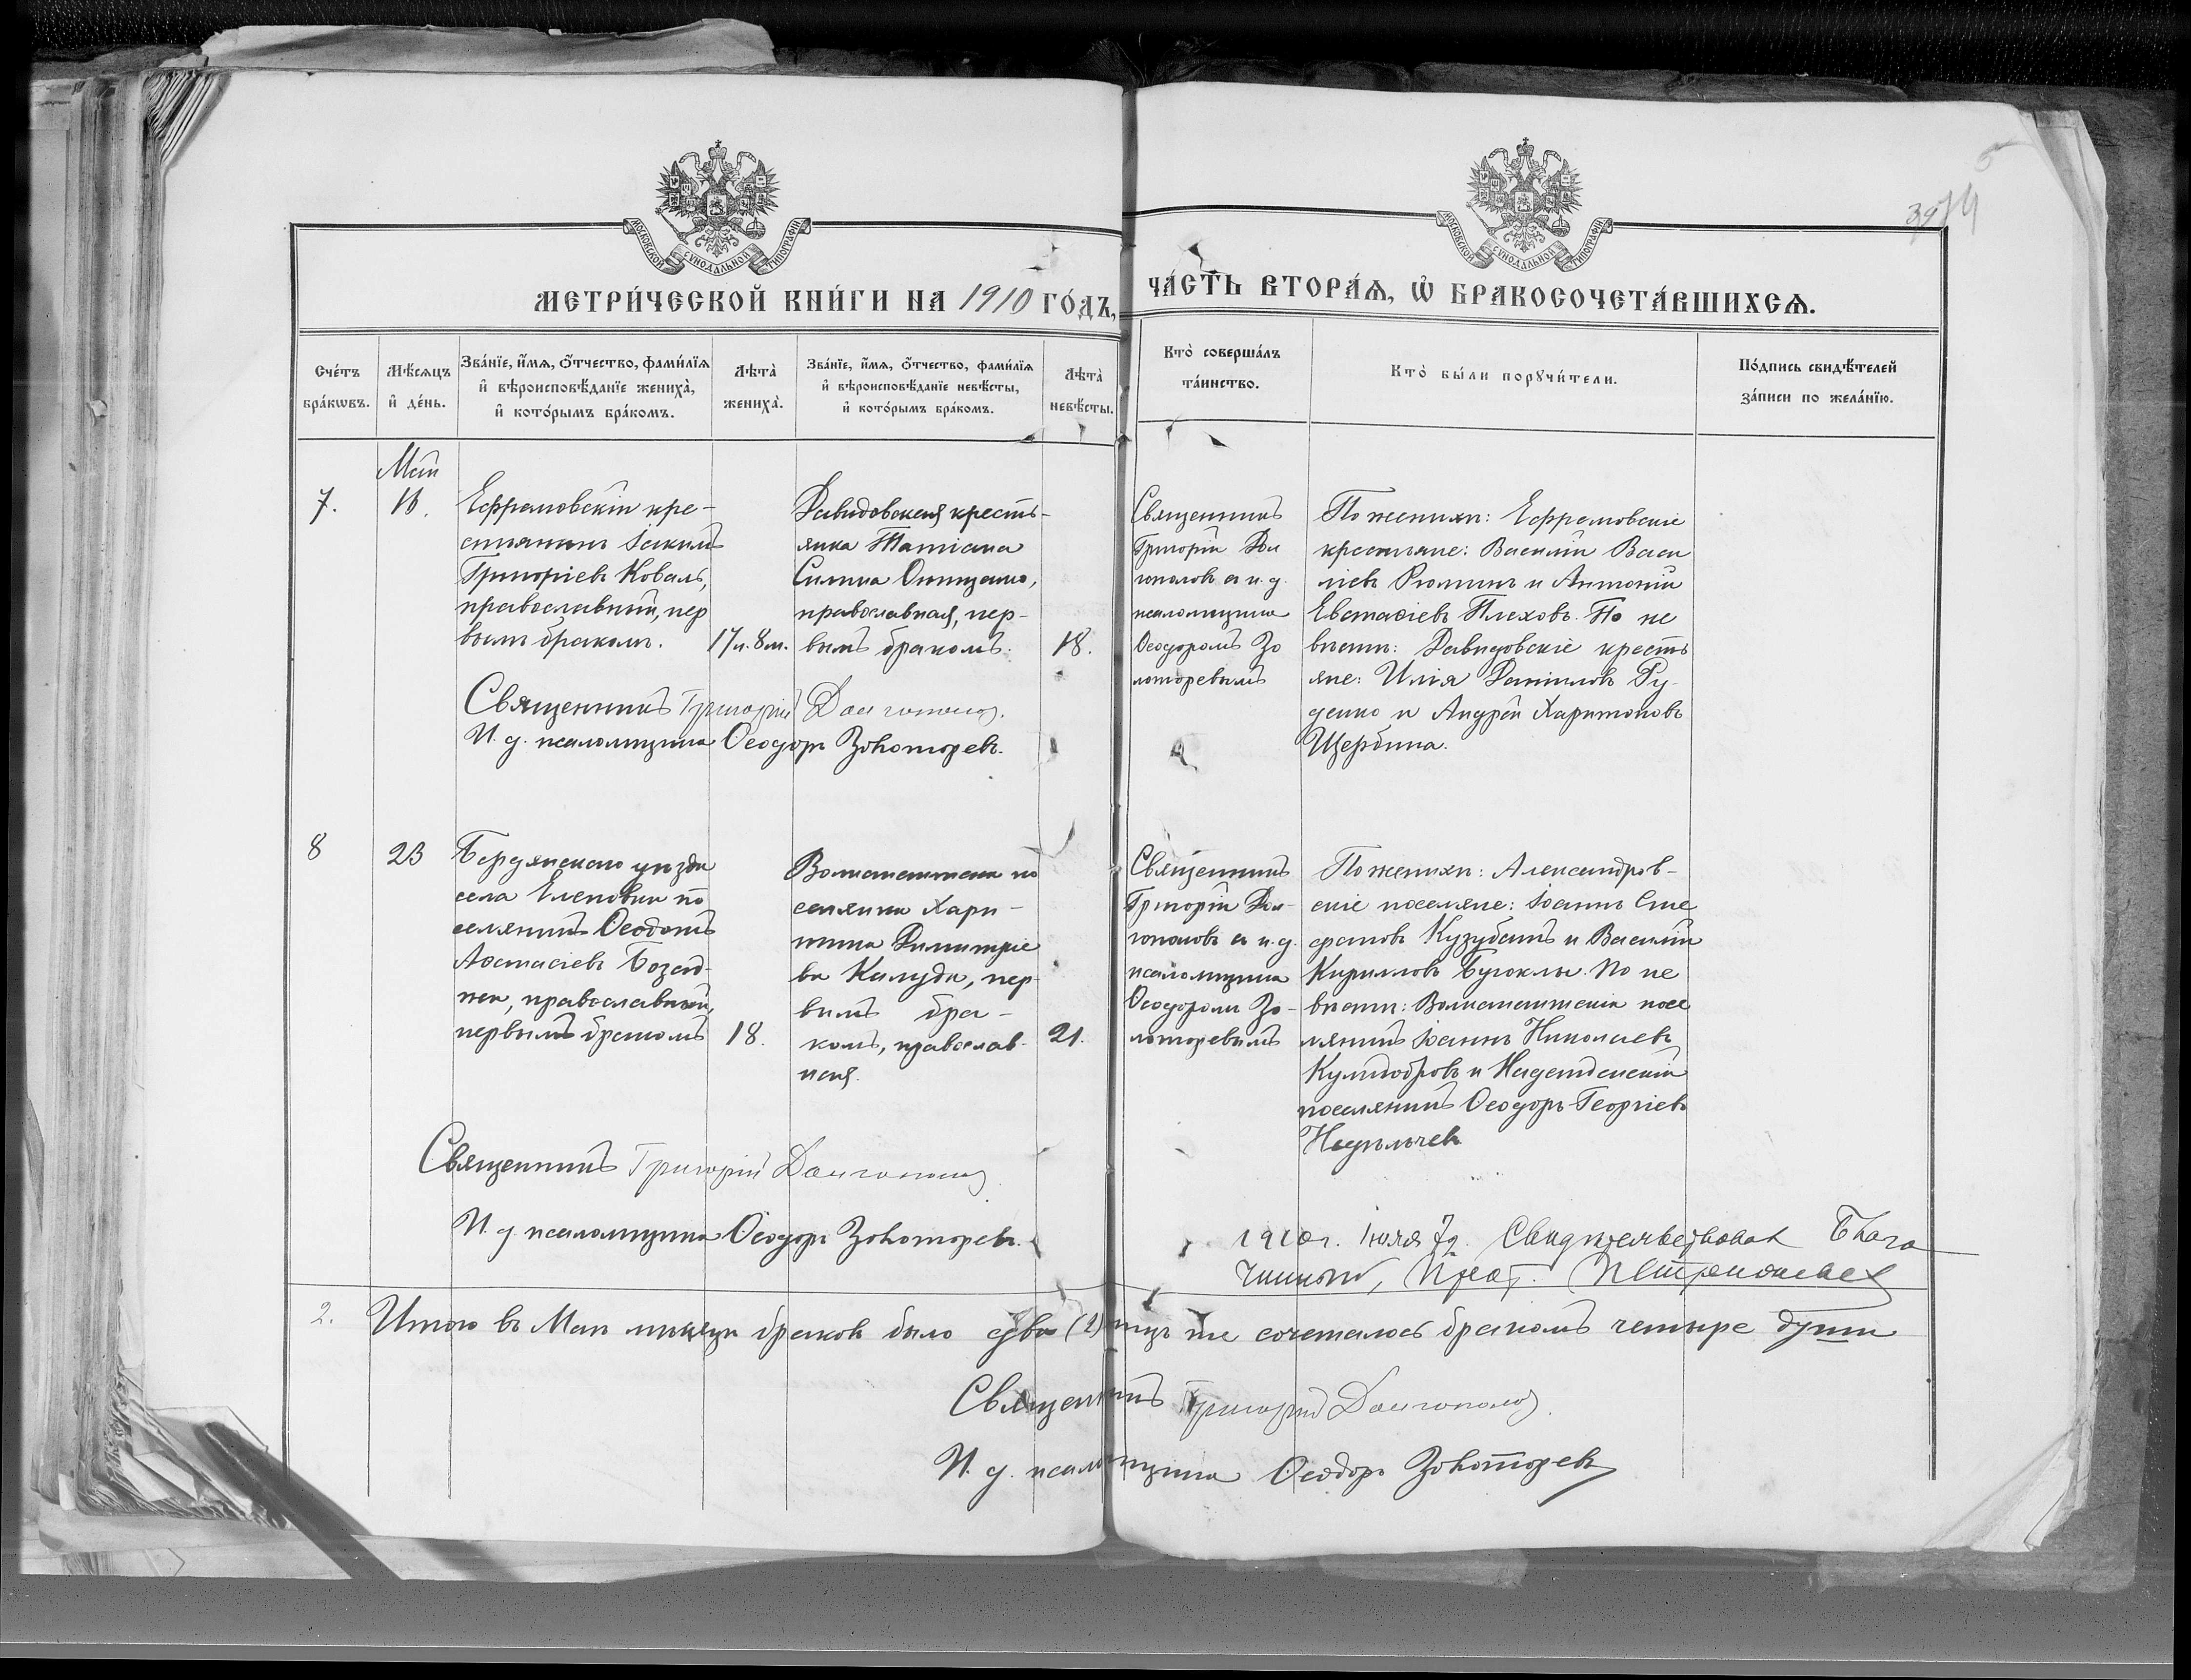 5
39 14
МОСКОВСКОЙ СѴНОДАЛЬНОЙ ТИПОГРАФІИ
МОСКОВСКОЙ СѴНОДАЛЬНОЙ ТИПОГРАФІИ
МЕТРИ́ЧЕСКОЙ КНИ́ГИ НА 1910 ГО́ДЪ,
ЧА́СТЬ ВТОРА́Ѧ, Ѡ҆ БРАКОСОЧЕТА́ВШИХСѦ.
Сче́тъ
бра́кѡвъ.
Мѣ́сѧцъ
и҆ де́нь.
Зва́нїе, и҆́мѧ, ѻ҆́тчество, фами́лїѧ
и҆ вѣроисповѣ́данїе жениха̀,
и҆ кото́рымъ бра́комъ.
Лѣта̀
жениха̀.
Зва́нїе, и҆́мѧ, ѻ҆́тчество, фами́лїѧ
и҆ вѣроисповѣ́данїе невѣ́сты,
и҆ кото́рымъ бра́комъ.
Лѣта̀
невѣ́сты.
Кто̀ соверша́лъ
та́инство.
Кто̀ бы́ли порꙋчи́тели.
По́дпись свидѣ́телей
за́писи по жела́нїю.
Май
7.
16.
Ефремовскій кре-
стьянинъ Іакимъ
Григоріевъ Коваль,
православный, пер
вымъ бракомъ.
17 л. 8 м.
Давидовская кресть-
янка Татіана
Силина Онищенко,
православная, пер-
вымъ бракомъ.
18.
Священникъ
Григорій Дол
гополовъ съ и. д.
псаломщика
Ѳеодоромъ Зо
лоторевымъ
По женихѣ: Ефремовскіе
крестьяне: Василій Васи
ліевъ Рюминъ и Антоній
Евстафіевъ Плеховъ. По не
вѣстѣ: Давидовскіе кресть
яне: Илія Даниловъ Ру-
денко и Андрей Харитоновъ
Щербина.
Священникъ Григорій Долгополов.
И. д. псаломщика Ѳеодоръ Золоторевъ.
8
23
Бердянскаго уѣзда
села Еленовки по
селянинъ Ѳеодотъ
Аѳанасіевъ
православный,
первымъ бракомъ
18.
по
селянка Хари-
тина Димитріе
ва Калуда, пер-
вымъ бра-
комъ, православ-
ная.
21.
Священникъ
Григорій Дол-
гополовъ съ и. д.
псаломщика
Ѳеодоромъ Зо-
лоторевымъ
По женихѣ: Александров-
скіе поселяне: Іоаннъ Сте
фановъ и Василій
Кирилловъ По не
вѣстѣ: посе
лянинъ Іоаннъ Николаевъ
и
поселянинъ Ѳеодоръ Георгіевъ
Священникъ Григорій Долгополов
И. д. псаломщика Ѳеодоръ Золоторевъ.
1910 г. Іюля 7 д. Свидѣтельствовалъ Благо
чинный, Прот.
2. Итого въ Маѣ мѣсяцѣ браковъ было два (2) коихъ же сочеталось бракомъ четыре души
Священникъ Григорій Долгополов.
И. д. псаломщика Ѳеодоръ Золоторевъ